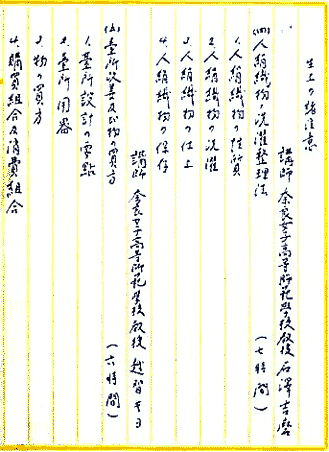 生上の諸注意
講師 奈良女子高等師範学校教授 石澤吉麿
(四)人絹織物ノ洗濯整理法 (七時間)
1.人絹織物の性質
2.人絹織物の洗濯
3.人絹織物の仕上
4.人絹織物の保存
講師 奈良女子高等師範学校教授 越智キヨ
(五)臺所改善及び物の買方 (六時間)
1.臺所設計の要點
2.臺所用器
3.物の買方
4.購買組合及消費組合